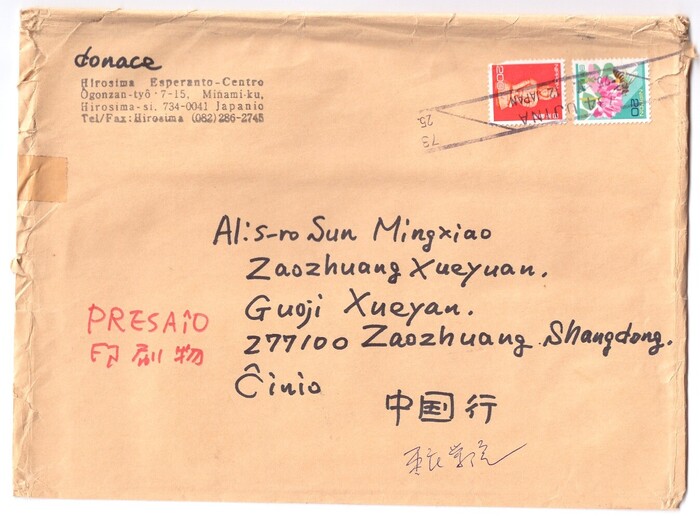 donace
Hirosima Esperanto-Centro
Ôgonzan-tyô 7-15, Minami-ku,
Hirosima-si, 734-0041 Japanio
Tel/Fax: Hirosima (082)286-2745
20
NIPPON
20
JAPAN
UJINA
25.
73
Al: s-ro Sun Mingxiao
Zaozhuang Xueyuan.
Guoji Xueyan.
277100 Zaozhuang Shangdong.
Ĉinio
PRESAĴO
印刷物
中国行
枣庄学院